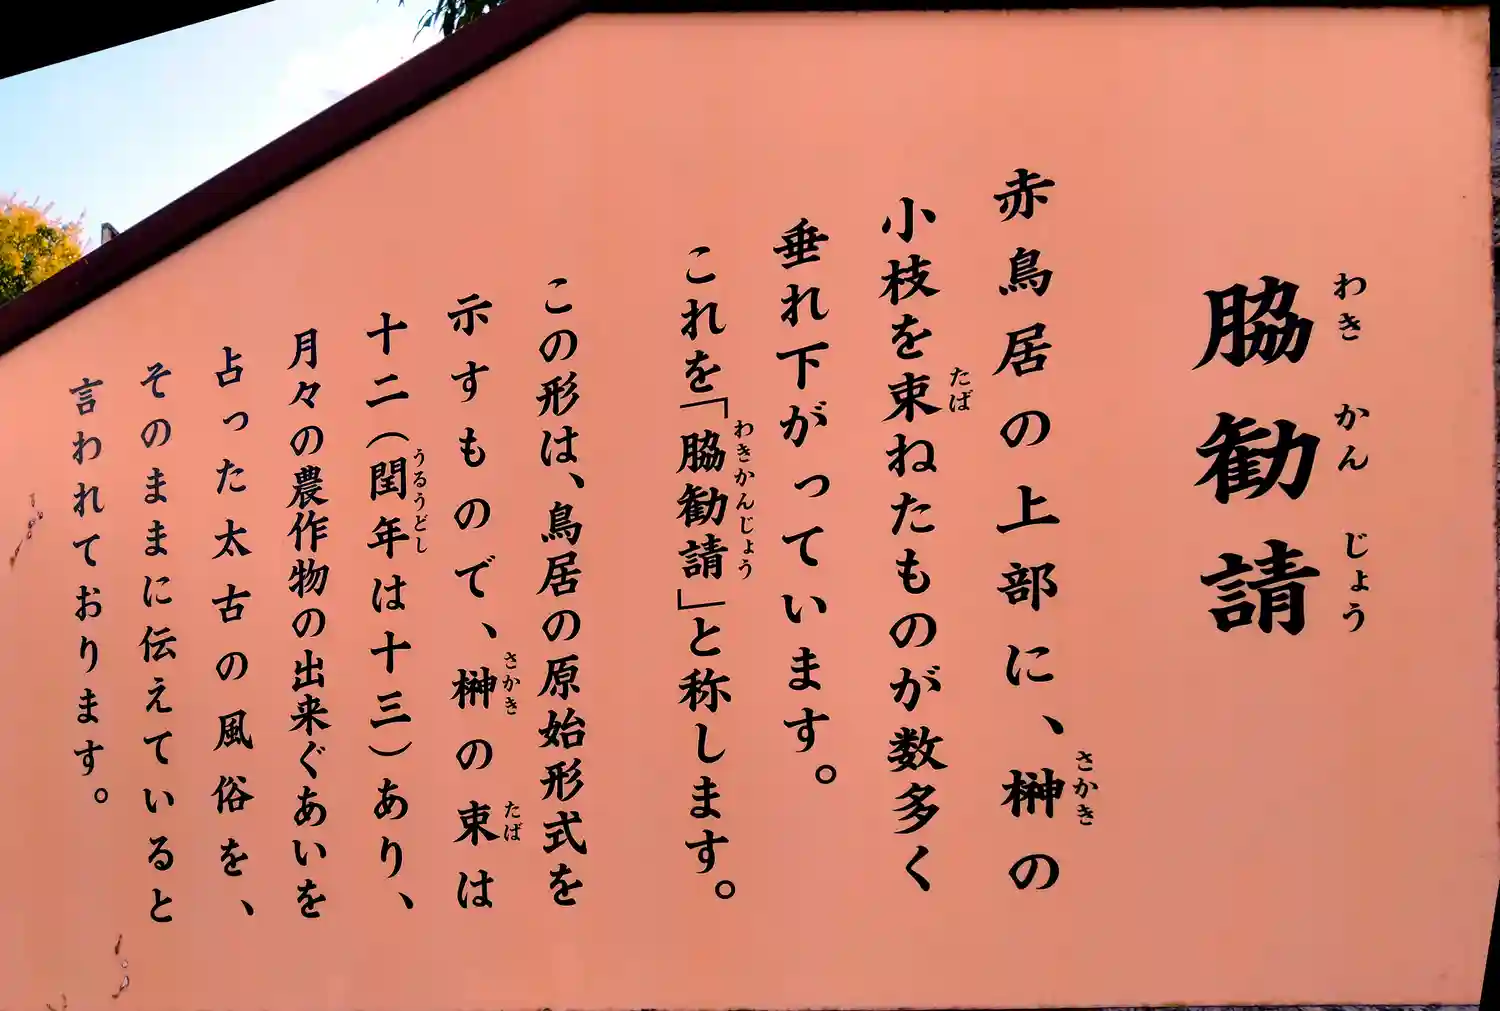 脇勧請
わき かん じょう
赤鳥居の上部に、榊の
さかき
小枝を束ねたものが数多く
たば
垂れ下がっています。
これを「脇勧請」と称します。
わきかんじょう
この形は、鳥居の原始形式を
示すもので、榊の束は
さかき たば
十二（閏年は十三）あり、
うるうどし
月々の農作物の出来ぐあいを
占った太古の風俗を、
そのままに伝えていると
言われております。